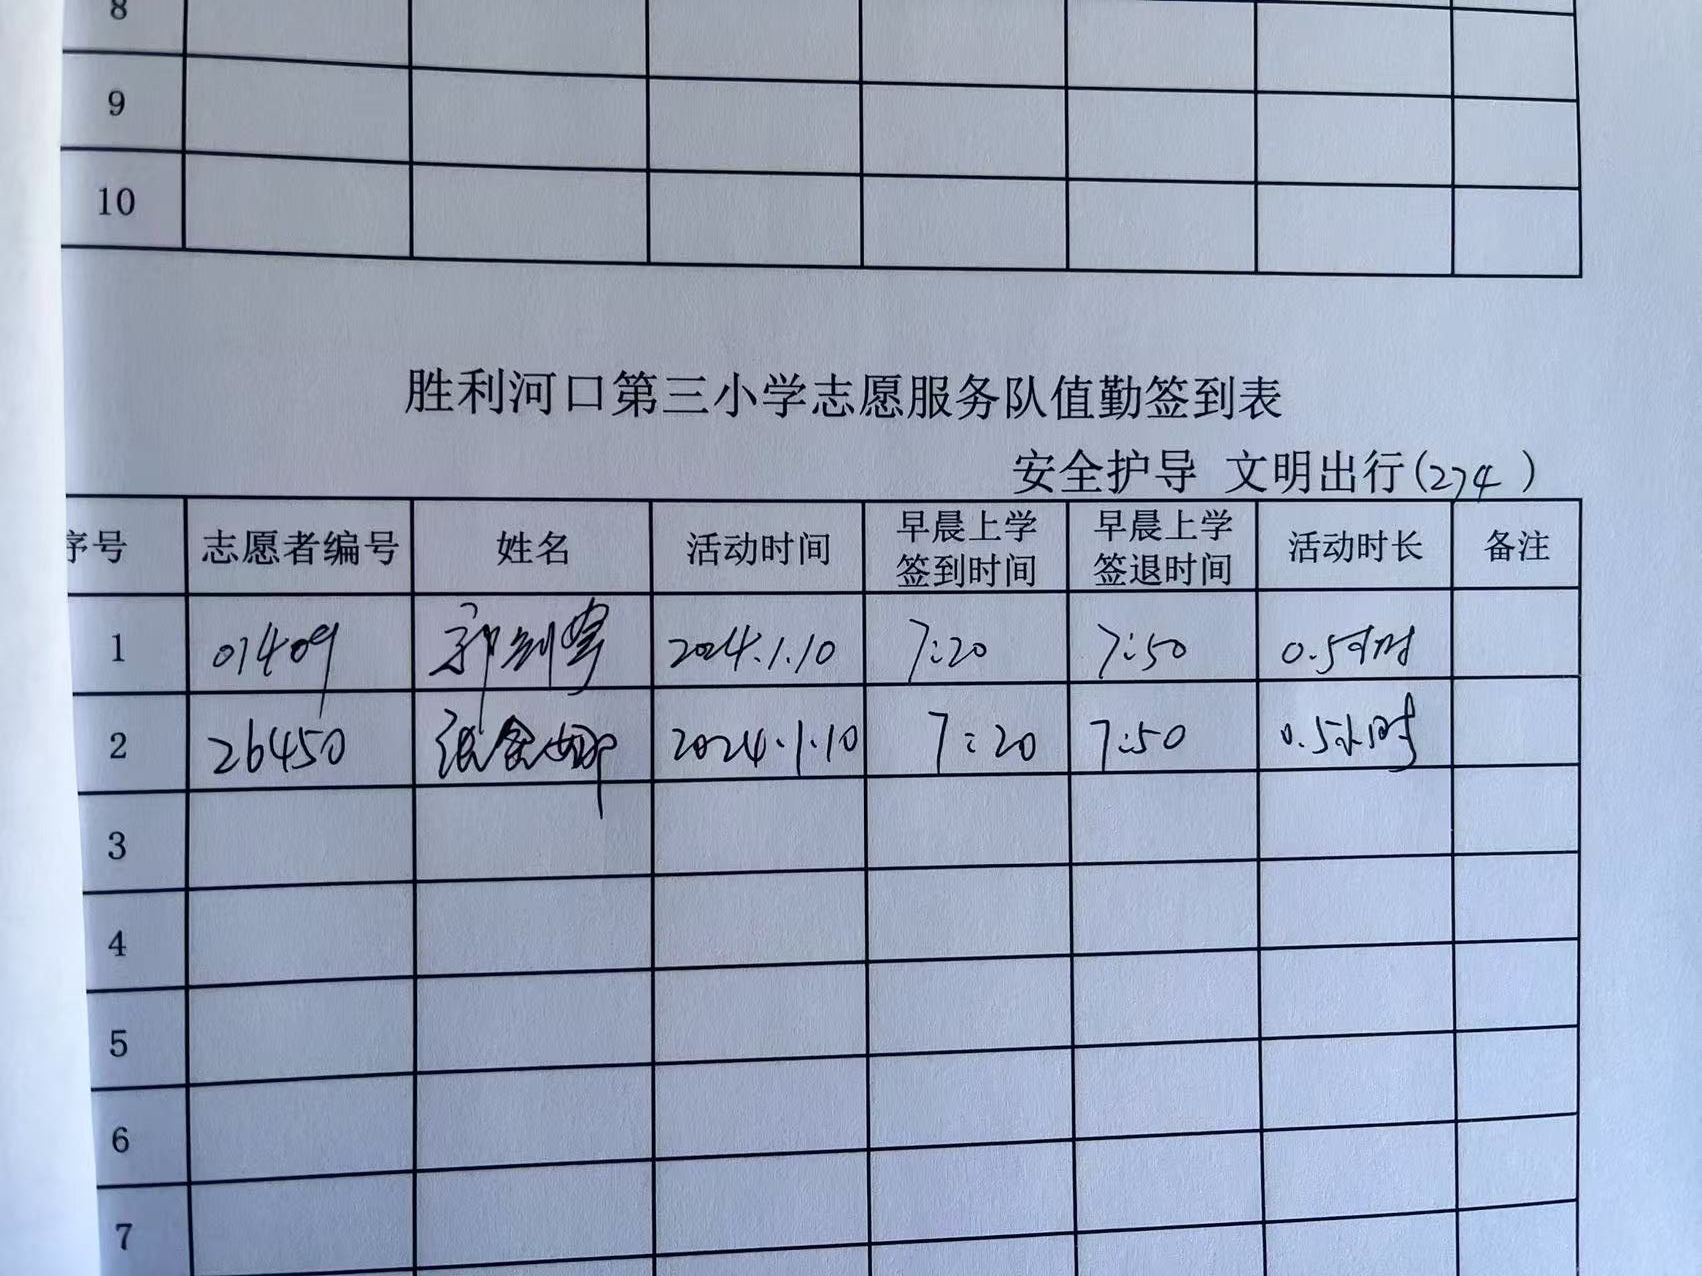 8
9
10
胜利河口第三小学志愿服务队值勤签到表
安全护导 文明出行(274)
序号 志愿者编号 姓名 活动时间 早晨上学签到时间 早晨上学签退时间 活动时长 备注
1 01409 郭 2024.1.10 7:20 7:50 0.5小时
2 26450 张金娜 2024.1.10 7:20 7:50 0.5小时
3
4
5
6
7